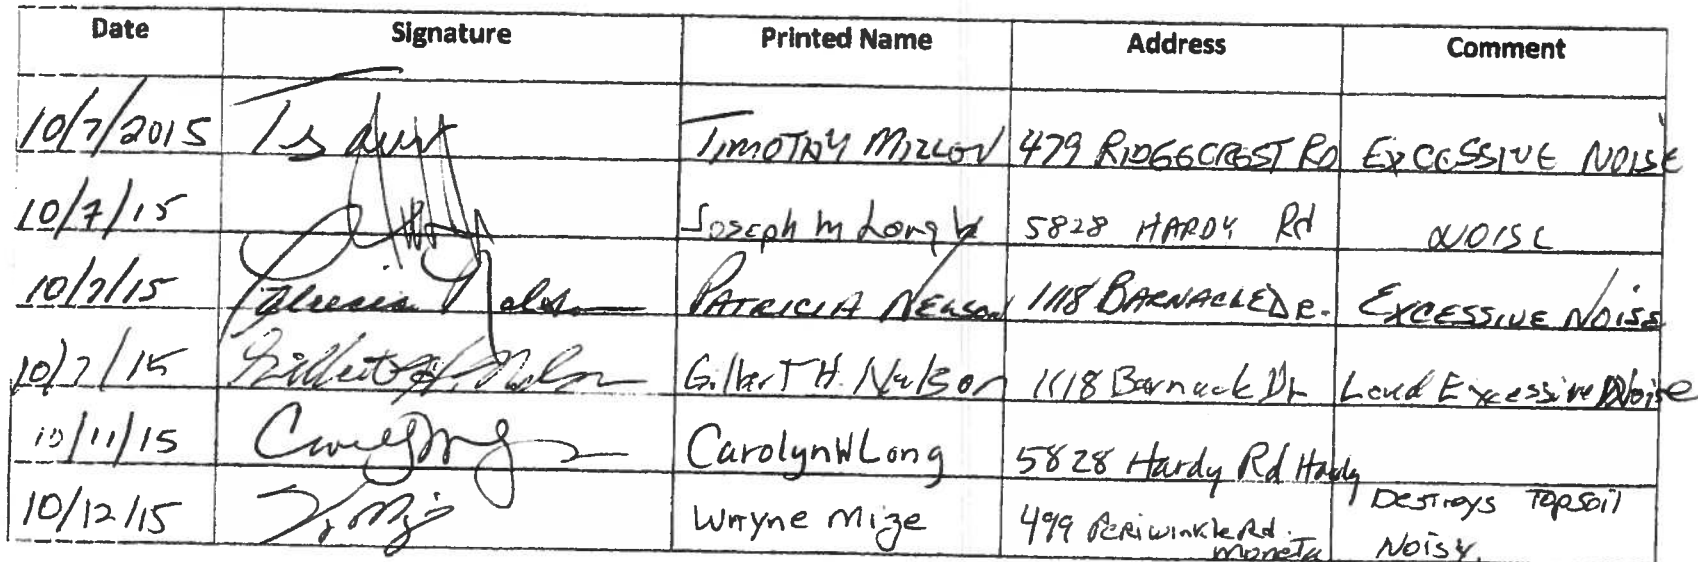 Date Signature Printed Name Address Comment
10/7/2015 TIMOTHY 479 RIDGECREST RD EXCESSIVE NOISE
10/7/15 Joseph M Long 5828 HARDY Rd NOISE
10/7/15 Patricia Nelson PATRICIA NELSON 1118 BARNACLE DR. EXCESSIVE NOISE
10/7/15 Gilbert H. Nelson Gilbert H. Nelson 1118 Barnacle Dr Loud Excessive Noise
10/11/15 Carolyn W Long 5828 Hardy Rd Hardy
10/12/15 Wayne Mize 499 Periwinkle Rd. Destroys Topsoil
Moneta Noisy.